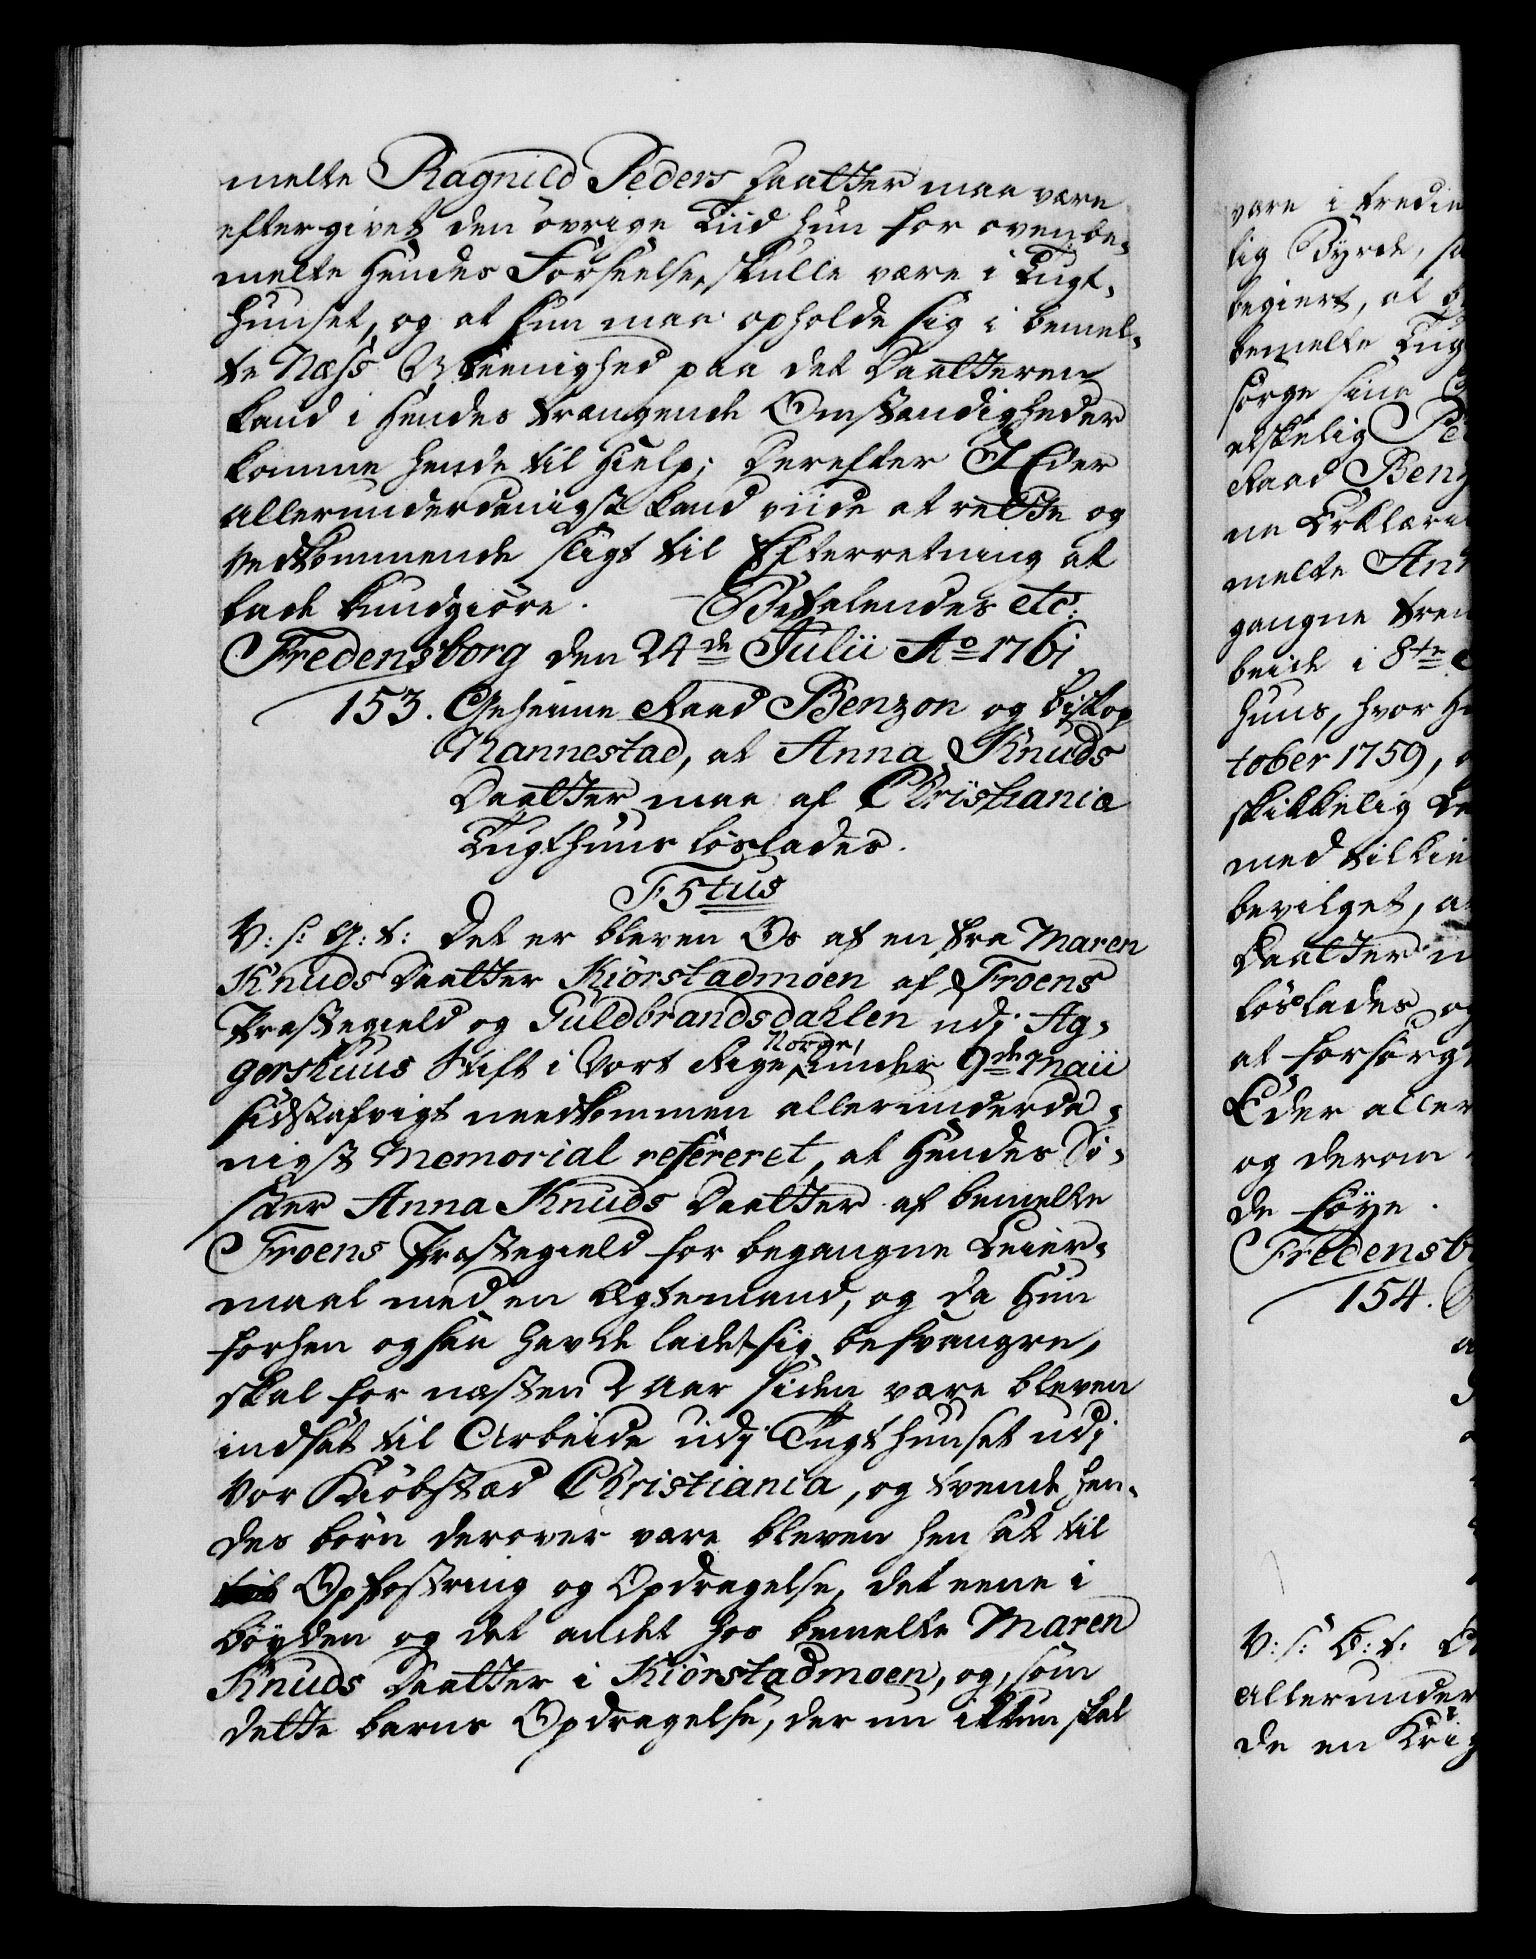 melte Ragnild Peders Daatter maa være
eftergivet den övrige Tiid hun for ovenbe-
melte Hendes Forseelse, skulle være i Tugt-
Huuset, og at hun maa opholde sig i bemel-
te Næss Meenighed paa det Daatteren
kand i Hendes trangende Omstændigheder
komme hende til Hielp; Derefter I Eder
allerunderdanigst kand viide at rette og
vedkommende sligt til Efterretning at
lade kundgiöre. Befalendes etc:
Fredensborg den 24de Julii Ao 1761
153. Geheime Raad Benzon og Biskop
Nannestad, at Anna Knuds
Daatter maa af Christiania
Tugthuus löslades.
F5tus
V: s: G: t: Det er bleven Os af en fra Maren
Knuds Daatter Kiörstadmoen af Froens
Præstegield og Guldbrandsdahlen udj Ag-
gershuus Stift i Vort Rige Norge, under 9de Maii
sidstafvigt needkommen allerunderda-
nigst Memorial refereret, at Hendes Sö-
ster Anna Knuds Daatter af bemelte
Froens Præstegield for begangne Leier-
maal med en Ægtemand, og da Hun
forhen ogsaa havde ladet sig besvangre,
skal for næsten 2 Aar siden være bleven
indsat til Arbeide udj Tugthuuset udj
Vor Kiöbstæd Christiania, og tvende Hen-
des börn derover være bleven hensat til
Opfostring og Opdragelse, det eene i
böyden og det andet hos bemelte Maren
Knuds Daatter i Kiörstadmoen, og, som
dette barns Opdragelse, der nu ikkun skal
være i tredie
lig Byrde, sa
begiert, at
bemelte Tug
sörge sine
elskelig Pe
Raad Benz
ne Erklæri
melte An
gangne
beide i 8te
Huus, hvor H
tober 1759,
skikkelig
med tilkie
bevilget, a
Daatter
löslades og
at forsörge
Eder aller
og derom
de föye.
Fredensb
154.
V: s: G: t:
allerunder
de en